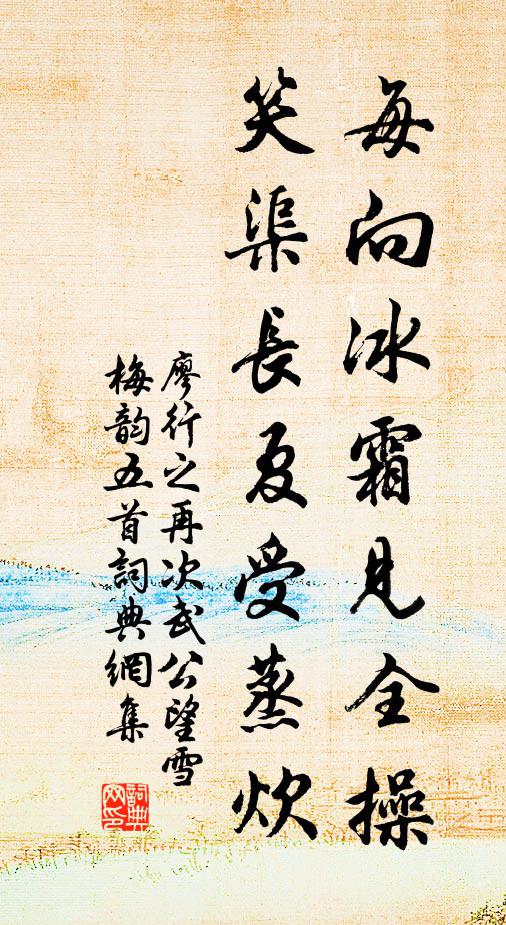 每向冰霜見全操
笑渠長夏受蒸炊
廖行之再次武公望雪
梅韵五首詞典網集
詞典
网印